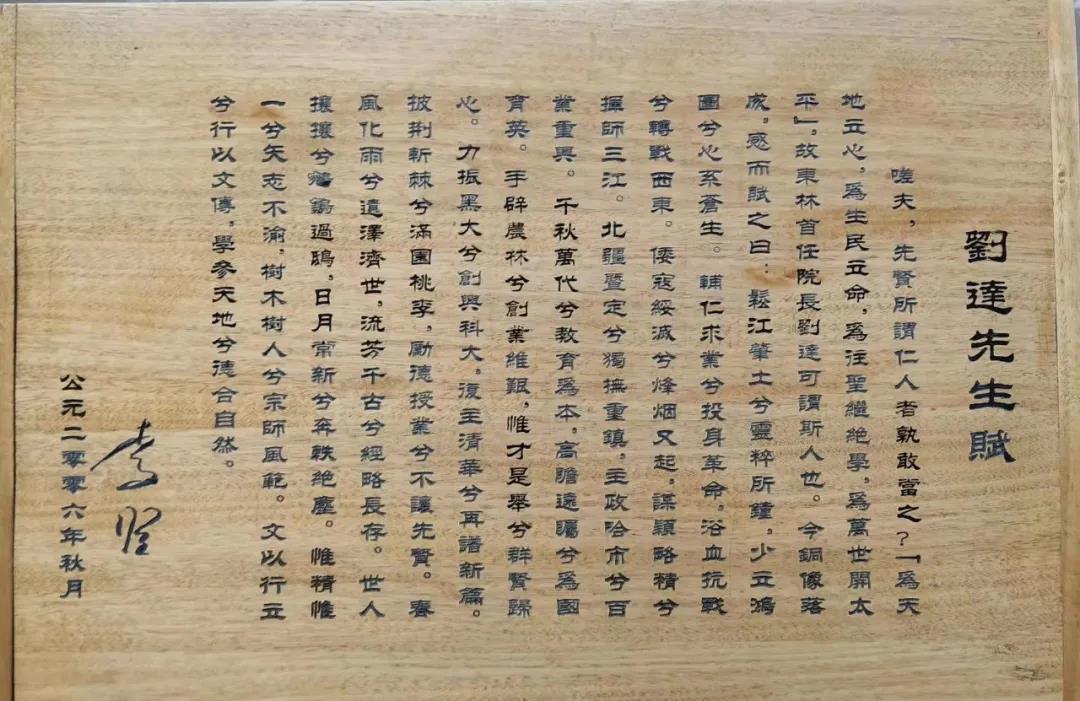 劉達先生賦
嗟夫，先賢所謂仁人者孰敢當之？「爲天
地立心，爲生民立命，爲往聖繼絶學，爲萬世開太
平」，故東林首任院長劉達可謂斯人也。今銅像落
成，感而賦之曰：鬆江肇土兮靈粹所鐘，少立鴻
圖兮心系蒼生。輔仁求業兮投身革命，浴血抗戰
兮轉戰西東。倭寇綏滅兮烽烟又起，謀穎略精兮
揮師三江。北疆暨定兮獨撫重鎮，主政哈市兮百
業重興。千秋萬代兮教育爲本，高瞻遠矚兮爲國
育英。手辟農林兮創業維艱，惟才是舉兮群賢歸
心。力振黑大兮創興科大，復主清華兮再譜新篇。
披荆斬棘兮滿園桃李，勵德授業兮不讓先賢。春
風化雨兮遺澤濟世，流芳千古兮經略長存。世人
攘攘兮鶩鶴過鴟，日月常新兮奔軼絶塵。惟精惟
一兮矢志不渝，樹木樹人兮宗師風範。文以行立
兮行以文傳，學參天地兮德合自然。
李堅
公元二零零六年秋月